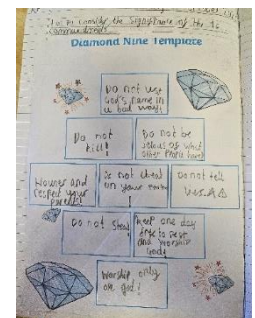 consider the significance of the 10
Commandments
Diamond Nine Template
Do not use
God's name in
a bad way!
Do not
kill!
Do not be
Jelous of what
other People have!
Honour and
respect your
parents!
Do not cheat
on your
Do not tell
Do not steal!
Keep one day
free to rest
and worship
God!
Worship only
one god!